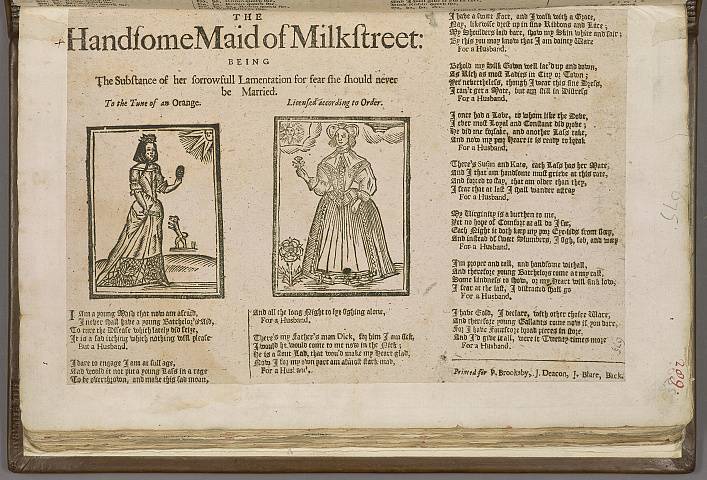 THE
Handsome Maid of Milkstreet:
BEING
The Substance of her sorrowfull Lamentation for fear she should never
be Married.
To the Tune of an Orange.
Licensed according to Order.
I Am a young Maid that now am afraid,
I never shall have a young Batchelor's Aid,
To cure the Disease which lately did seize,
It is a sad itching which nothing will please
But a Husband.
I dare to engage I am at full age,
And would it not put a young Lass in a rage
To be overthrown, and make this sad moan,
And all the long Night to lye sighing alone,
For a Husband.
There's my Father's man Dick, for him I am sick,
I would he would come to me now in the Nick;
He is a stout Lad, that would make my Heart glad,
Now I for my own part am almost stark mad,
For a Husband.
I have a sweet Face, and I walk with a Grace,
Nay, likewise drest up in fine Ribbons and Lace;
My Shoulders laid bare, show my Skin white and fair;
By this you may know that I am dainty Ware
For a Husband.
Behold my Silk Gown well lac'd up and down,
As Rich as most Ladies in City or Town;
Yet nevertheless, though I wear this fine Dress,
I can't get a Mate, but am still in Distress
For a Husband.
I once had a Love, to whom like the Dove,
I ever most Loyal and Constant did prove;
He did me forsake, and another Lass take,
And now my poor Heart it is ready to break
For a Husband.
There's Susan and Kate, each Lass has her Mate,
And I that am handsome must grieve at this rate,
And forced to stay, that am older than they,
I fear that at last I shall wander astray
For a Husband.
My Virginity is a burthen to me,
Yet no hope of Comfort at all do I see,
Each Night it doth keep my poor Eye-lids from sleep,
And instead of sweet slumbers, I sigh, sob, and weep
For a Husband.
I'm proper and tall, and handsome withall,
And therefore young Batchelors come at my call,
Some kindness to show, or my Heart will sink low;
I fear at the last, I distracted shall go
For a Husband.
I have Gold, I declare, with other choice Ware,
And therefore young Gallants come now if you dare,
For I have Fourscore broad pieces in store,
And I'd give it all, were it Twenty times more
For a Husband.
Printed for P. Brooksby, J. Deacon, J. Blare, Back.
209